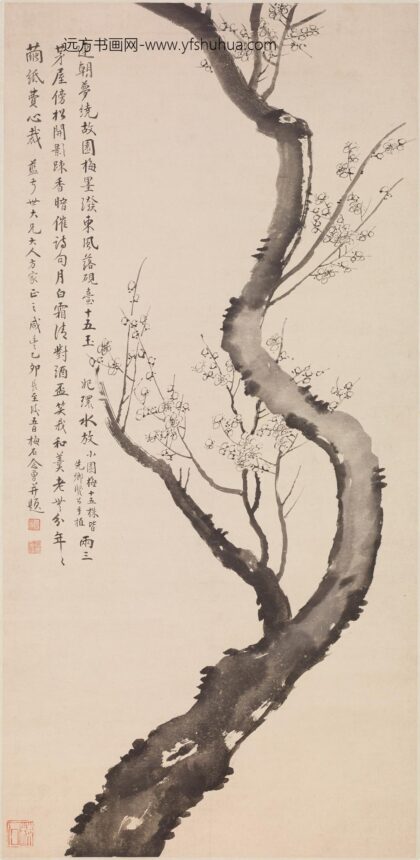 远方书画网-www.yfshuhua.com
朝夢繞故園梅墨潑東風落硯臺十五玉妃環水放小園梅十五株皆先鄉賢公手植兩三
茅屋傍松開影踈香暗催詩句月白霜清對酒盃笑我和羹老無分年〻
繭紙費心裁 藍亭世大兄大人方家正之咸豐乙卯長至後五日梅石念曾并題